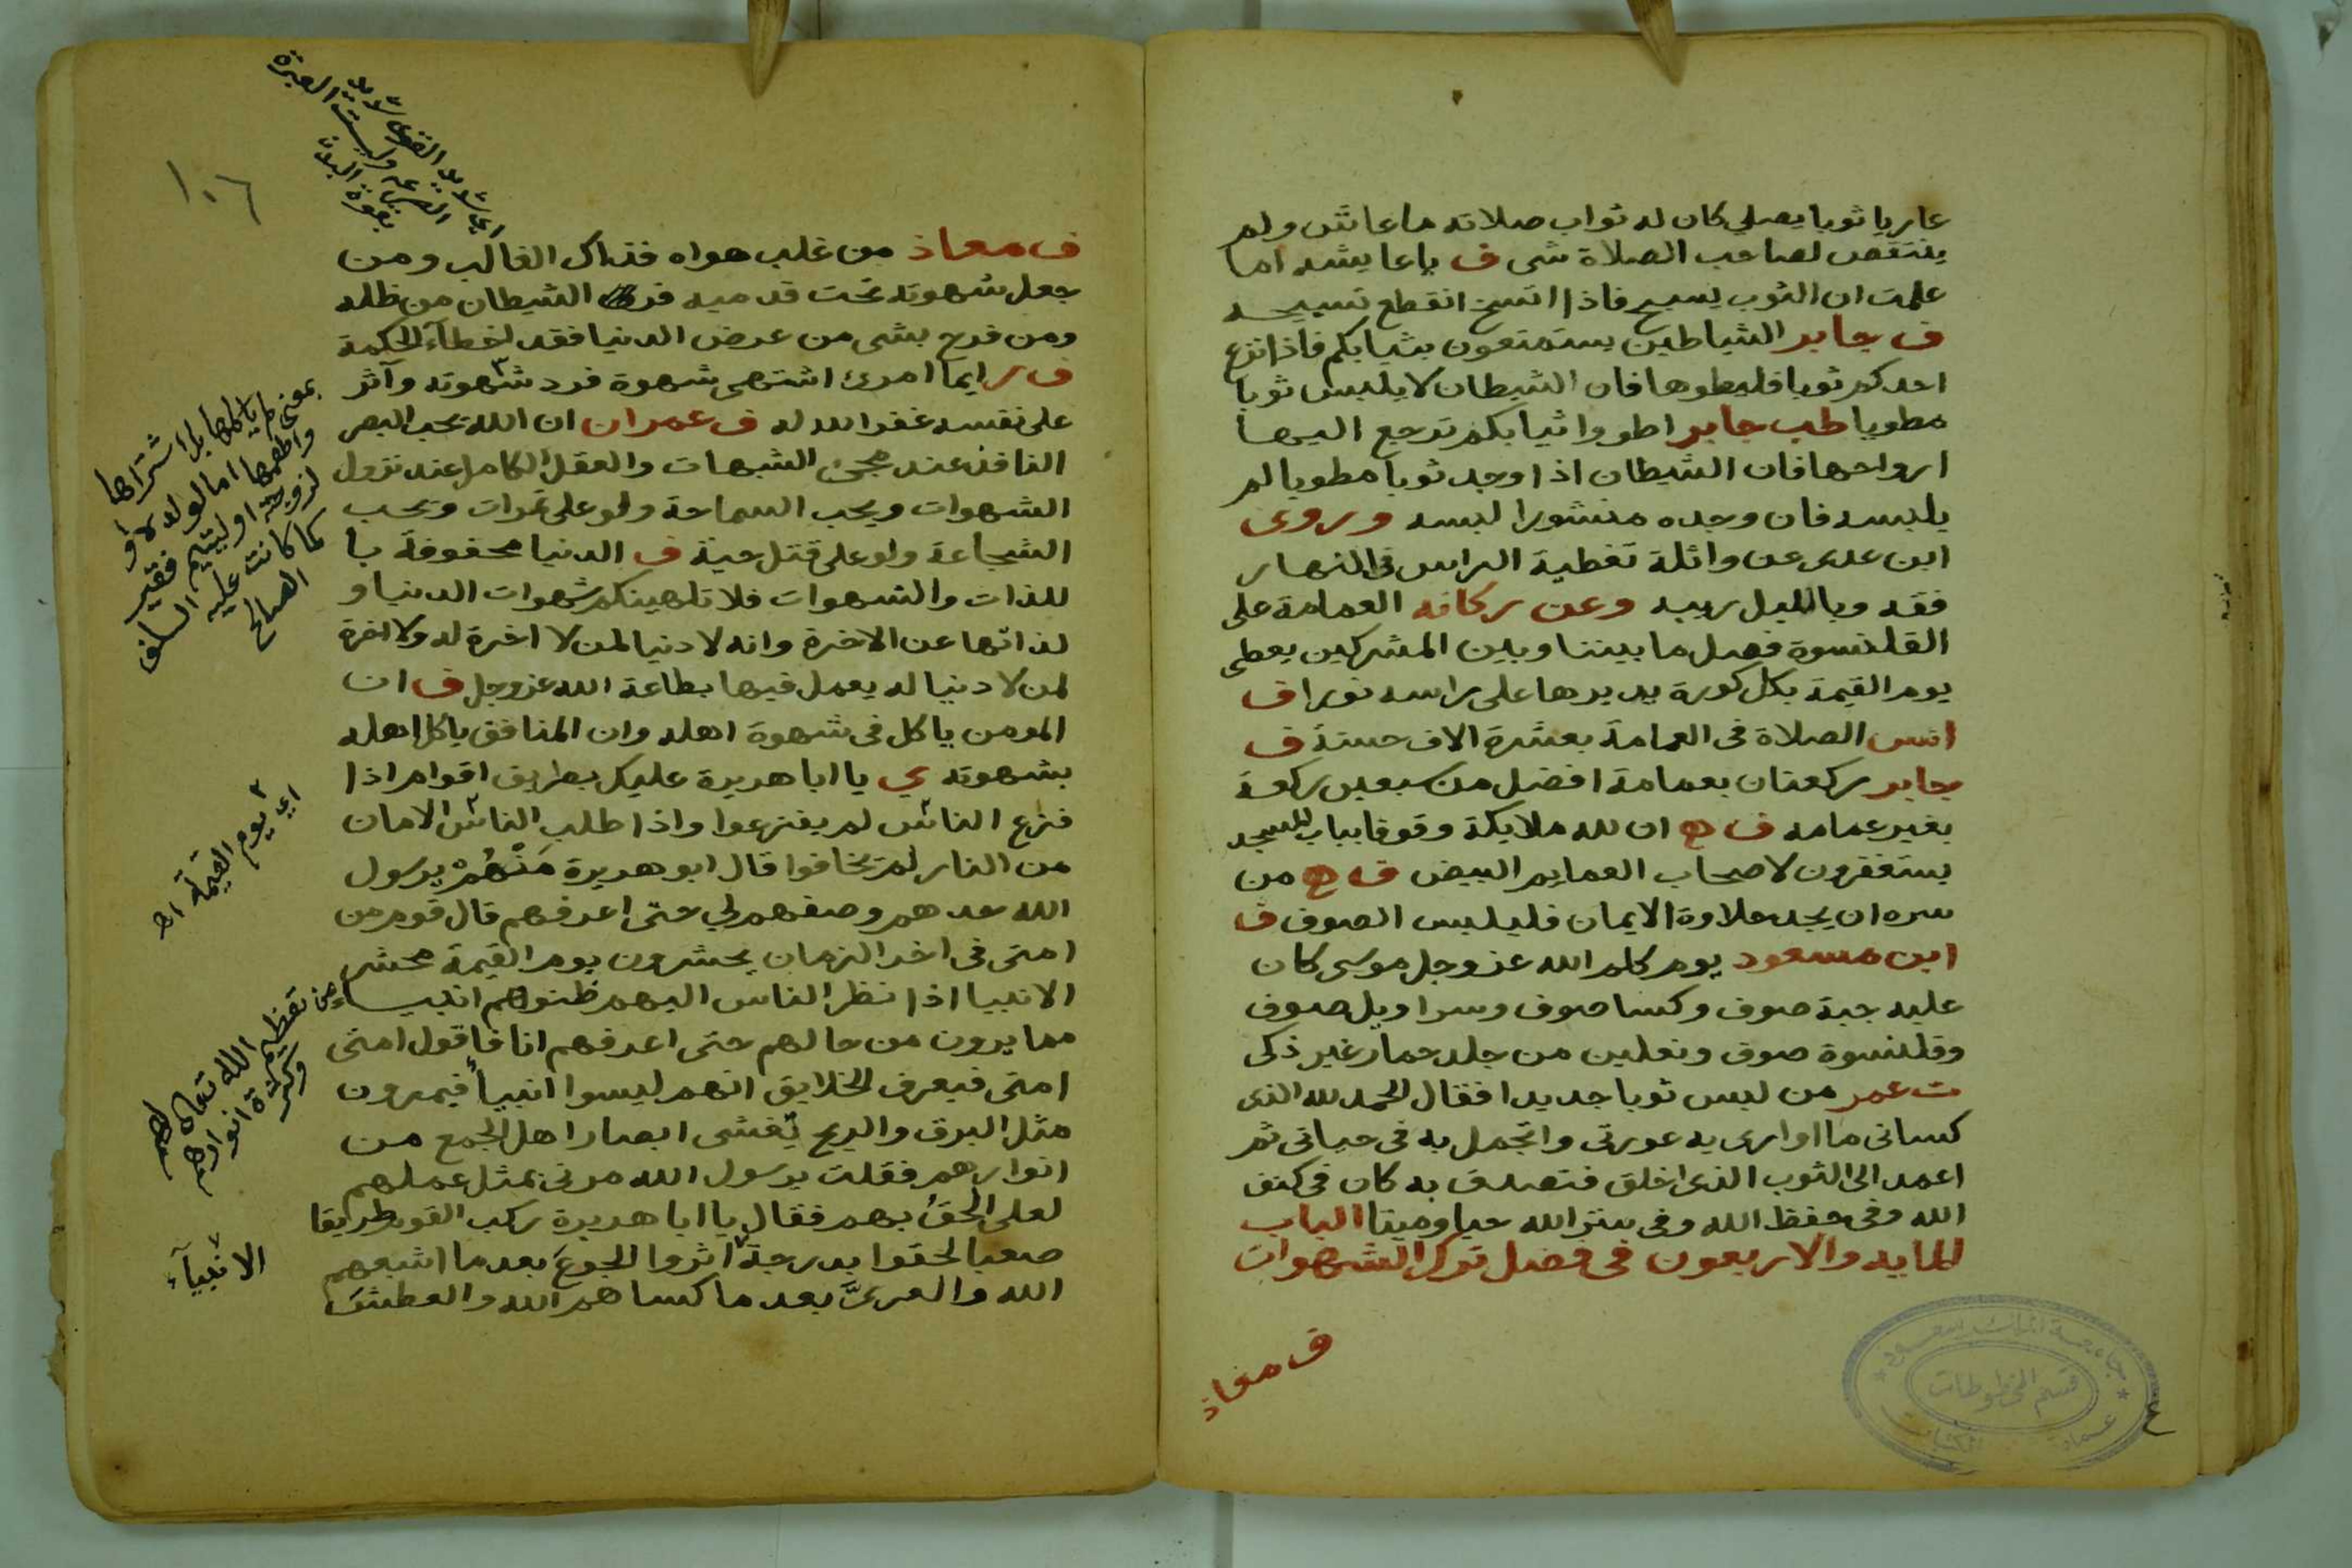 عاريا ثوبا يصلي كان له ثواب صلاته ما عاش ولم
ينتقص لصاحب الصلاة شى ف يا عايشه اما
علمت ان الثوب يسبح فاذا اتسخ انقطع تسبيحه
ف جابر الشياطين يستمتعون بثيابكم فاذا نزع
احدكم ثوبا فليطوها فان الشيطان لا يلبس ثوبا
مطويا طب جابر اطووا ثيابكم ترجع اليها
ارواحها فان الشيطان اذا وجد ثوبا مطويا لم
يلبسه فان وجده منشورا لبسه وروى
ابن عدى عن واثلة تغطية الراس فى النهار
فقه وبالليل ريبه وعن ركانه العمامة على
القلنسوة فصل ما بيننا وبين المشركين يعطى
يوم القيمة بكل كورة يديرها على راسه نورا ف
انس الصلاة فى العمامة بعشرة الاف حسنة ف
جابر ركعتان بعمامة افضل من سبعين ركعة
بغير عمامه ف ه ان لله ملايكة وقوفا بباب المسجد
يستغفرون لاصحاب العمايم البيض ف ه من
سره ان يجد حلاوة الايمان فليلبس الصوف ف
ابن مسعود يوم كلم الله عز وجل موسى كان
عليه جبة صوف وكسا صوف وسراويل صوف
وقلنسوة صوف ونعلين من جلد حمار غير ذكى
ت عمر من لبس ثوبا جديدا فقال الحمد لله الذى
كسانى ما اوارى به عورتى واتجمل به فى حياتى ثم
اعمد الى الثوب الذى اخلق فتصدق به كان فى كنف
الله وفى حفظ الله وفى ستر الله حيا وميتا الباب
المايه والاربعون فى فضل ترك الشهوات
ف معاذ
قسم المخطوطات
١٠٦
ف معاذ من غلب هواه فذاك الغالب ومن
جعل شهوته تحت قدميه فر الشيطان من ظله
ومن فرح بشى من عرض الدنيا فقد اخطأ الحكمة
ف ر ايما امرئ اشتهى شهوة فرد شهوته وآثر
على نفسه غفر الله له ف عمران ان الله يحب البصر
النافذ عند مجئ الشبهات والعقل الكامل عند نزول
الشهوات ويحب السماحة ولو على تمرات ويحب
الشجاعة ولو على قتل حية ف الدنيا محفوفة با
للذات والشهوات فلا تلهينكم شهوات الدنيا و
لذاتها عن الاخرة وانه لا دنيا لمن لا اخرة له ولا اخرة
لمن لا دنيا له يعمل فيها بطاعة الله عز وجل ف ان
المومن ياكل فى شهوة اهله وان المنافق ياكل اهله
بشهوته ي يا ابا هريرة عليك بطريق اقوام اذا
فزع الناس لم يفزعوا واذا طلب الناس الامان
من النار لم يخافوا قال ابو هريرة من هم يرسول
الله عدهم وصفهم لي حتى اعرفهم قال قوم من
امتى فى اخر الزمان يحشرون يوم القيمة محشر
الانبيا اذا نظر الناس اليهم ظنوهم انبياء
مما يرون من حالهم حتى اعرفهم انا فاقول امتى
امتى فيعرف الخلايق انهم ليسوا انبيأ فيمرون
مثل البرق والريح تغشى ابصار اهل الجمع من
انوارهم فقلت يرسول الله مرنى بمثل عملهم
لعلى الحق بهم فقال يا ابا هريرة ركب القوم طريقا
صعبا لحقوا بدرجة اثروا الجوع بعد ما اشبعهم
الله والعرى بعد ما كساهم الله والعطش
بمعنى لم ياكلها بل اشتراها
واطعمها اما لولد او
لزوجة او ليتيم فقير
كما كانت عليه السلف
الصالح
اي يوم القيمة اه
من تعظيم الله تعالى لهم
وكثرة انوارهم
الانبيآء